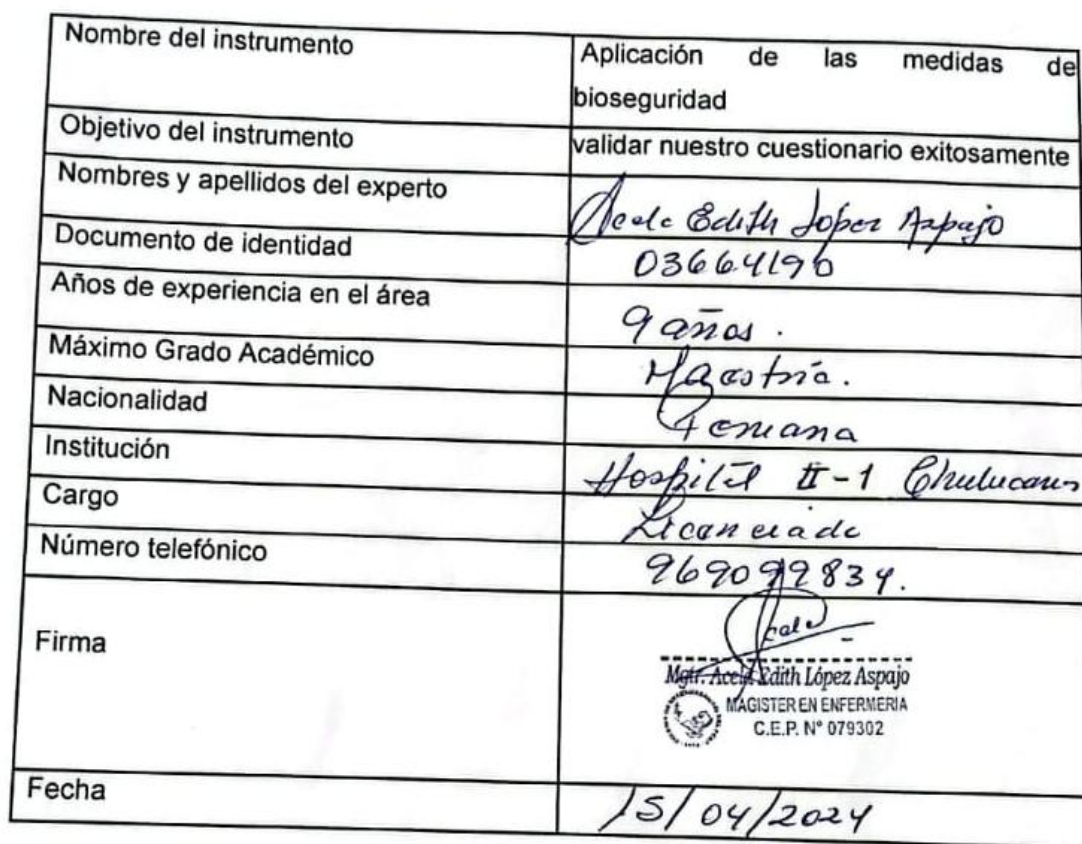 Nombre del instrumento
Aplicación de las medidas de
bioseguridad
Objetivo del instrumento
validar nuestro cuestionario exitosamente
Nombres y apellidos del experto
Acela Edith López Aspajo
Documento de identidad
03664190
Años de experiencia en el área
9 años.
Máximo Grado Académico
Maestría.
Nacionalidad
Peruana
Institución
Hospital II-1 Chulucanas
Cargo
Licenciada
Número telefónico
969099834.
Firma
Mgtr. Acela Edith López Aspajo
MAGISTER EN ENFERMERIA
C.E.P. N° 079302
Fecha
15/04/2024